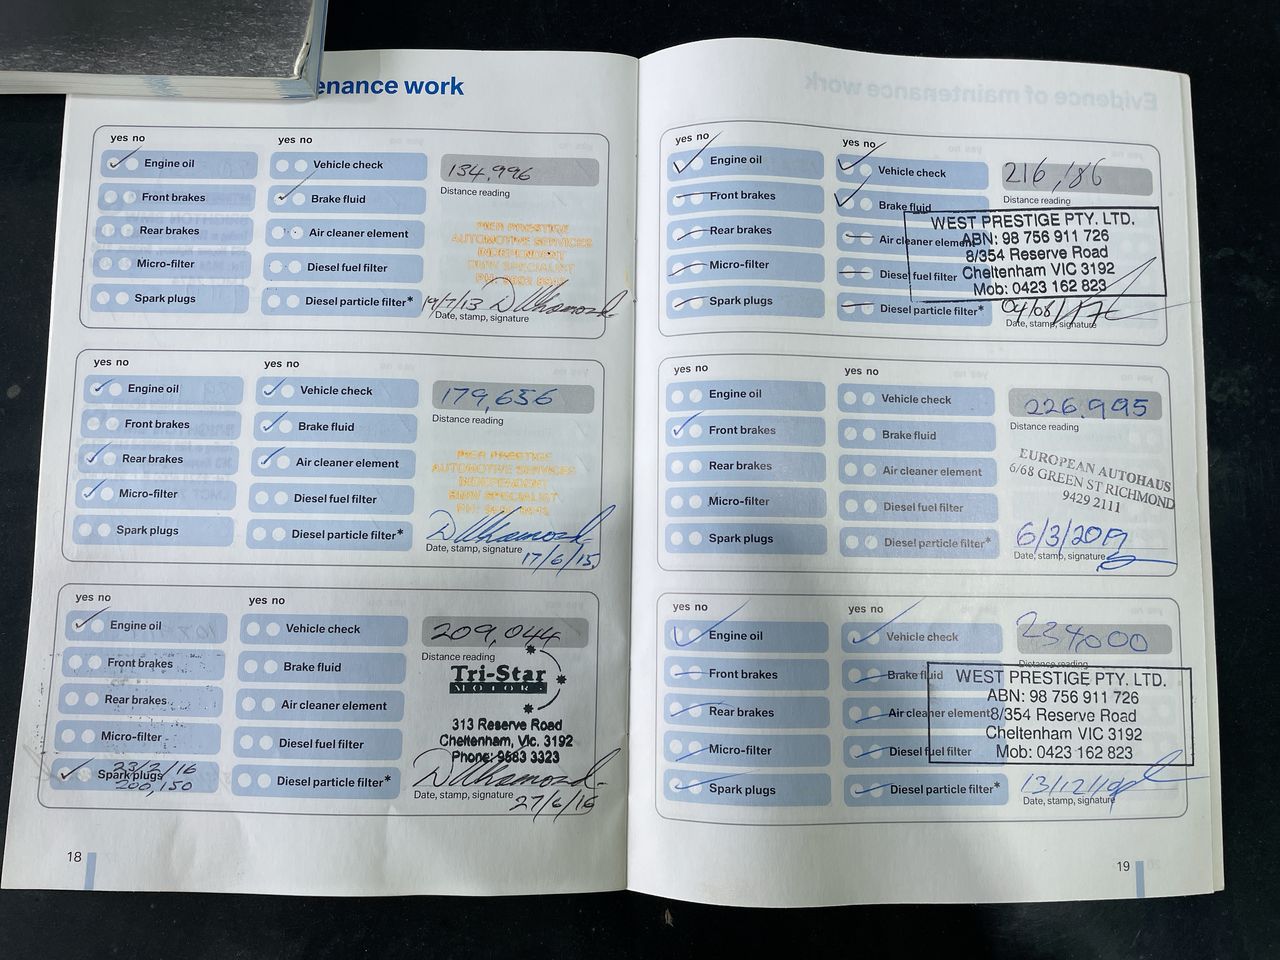 enance work
yes no
yes no
Engine oil
Vehicle check
134,996
Distance reading
Front brakes
Brake fluid
Rear brakes
Air cleaner element
Micro-filter
Diesel fuel filter
Spark plugs
Diesel particle filter*
PIER PRESTIGE
AUTOMOTIVE SERVICES
INDEPENDENT
BMW SPECIALIST
19/7/13
Date, stamp, signature
yes no
yes no
Engine oil
Vehicle check
179,656
Distance reading
Front brakes
Brake fluid
Rear brakes
Air cleaner element
Micro-filter
Diesel fuel filter
Spark plugs
Diesel particle filter*
PIER PRESTIGE
AUTOMOTIVE SERVICES
INDEPENDENT
BMW SPECIALIST
Date, stamp, signature
17/6/15
yes no
yes no
Engine oil
Vehicle check
209,044
Distance reading
Front brakes
Brake fluid
Rear brakes
Air cleaner element
Micro-filter
Diesel fuel filter
23/2/16
Spark plugs
200,150
Diesel particle filter*
Tri-Star
MOTORS
313 Reserve Road
Cheltenham, Vic. 3192
Phone: 9583 3323
Date, stamp, signature
27/6/16
18
yes no
yes no
Engine oil
Vehicle check
216,186
Distance reading
Front brakes
Brake fluid
Rear brakes
Air cleaner element
Micro-filter
Diesel fuel filter
Spark plugs
Diesel particle filter*
WEST PRESTIGE PTY. LTD.
ABN: 98 756 911 726
8/354 Reserve Road
Cheltenham VIC 3192
Mob: 0423 162 823
04/08/17
Date, stamp, signature
yes no
yes no
Engine oil
Vehicle check
226,995
Distance reading
Front brakes
Brake fluid
Rear brakes
Air cleaner element
Micro-filter
Diesel fuel filter
Spark plugs
Diesel particle filter*
EUROPEAN AUTOHAUS
6/68 GREEN ST RICHMOND
9429 2111
6/3/2019
Date, stamp, signature
yes no
yes no
Engine oil
Vehicle check
234000
Distance reading
Front brakes
Brake fluid
Rear brakes
Air cleaner element
Micro-filter
Diesel fuel filter
Spark plugs
Diesel particle filter*
WEST PRESTIGE PTY. LTD.
ABN: 98 756 911 726
8/354 Reserve Road
Cheltenham VIC 3192
Mob: 0423 162 823
13/12/19
Date, stamp, signature
19